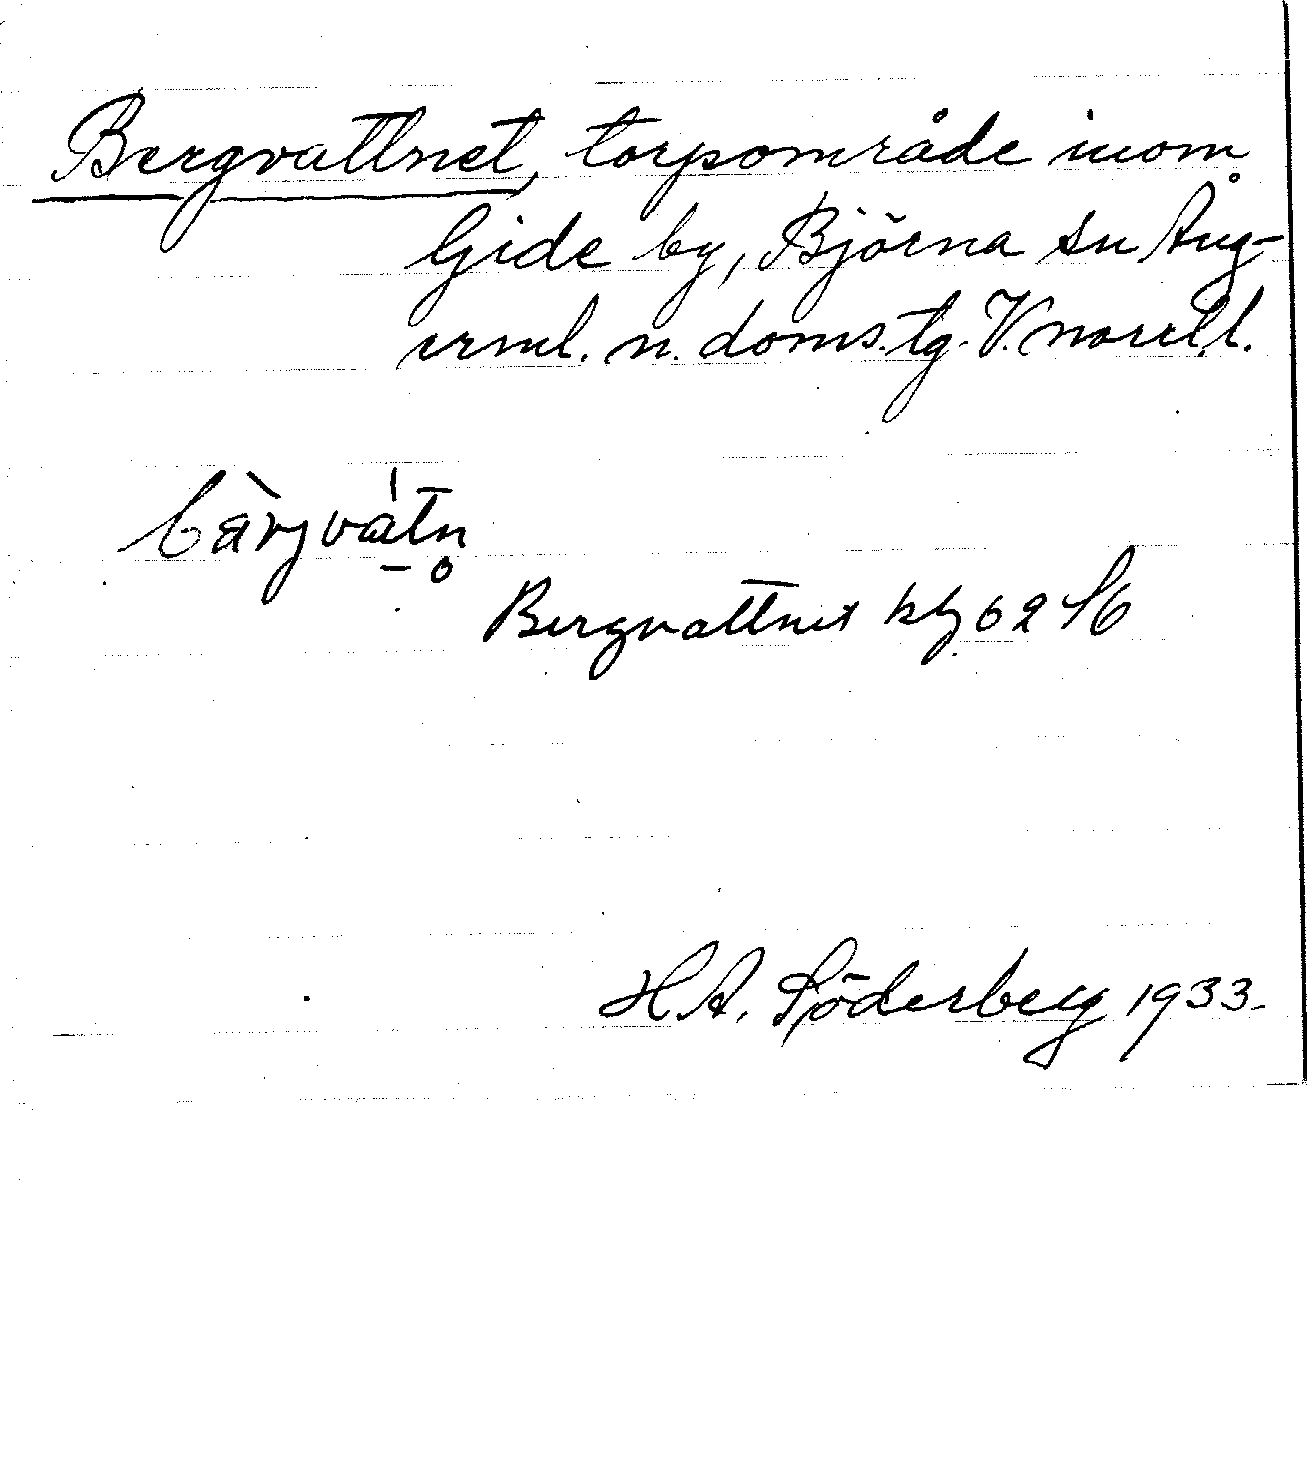 Bergvattnet, torpområde inom
Gide by, Björna sn Ång-
erml. n. doms.tg. V.norrl.l.
bàrjvátn̥
Bergvattnet kb 62 S6
H.A. Söderberg 1933.